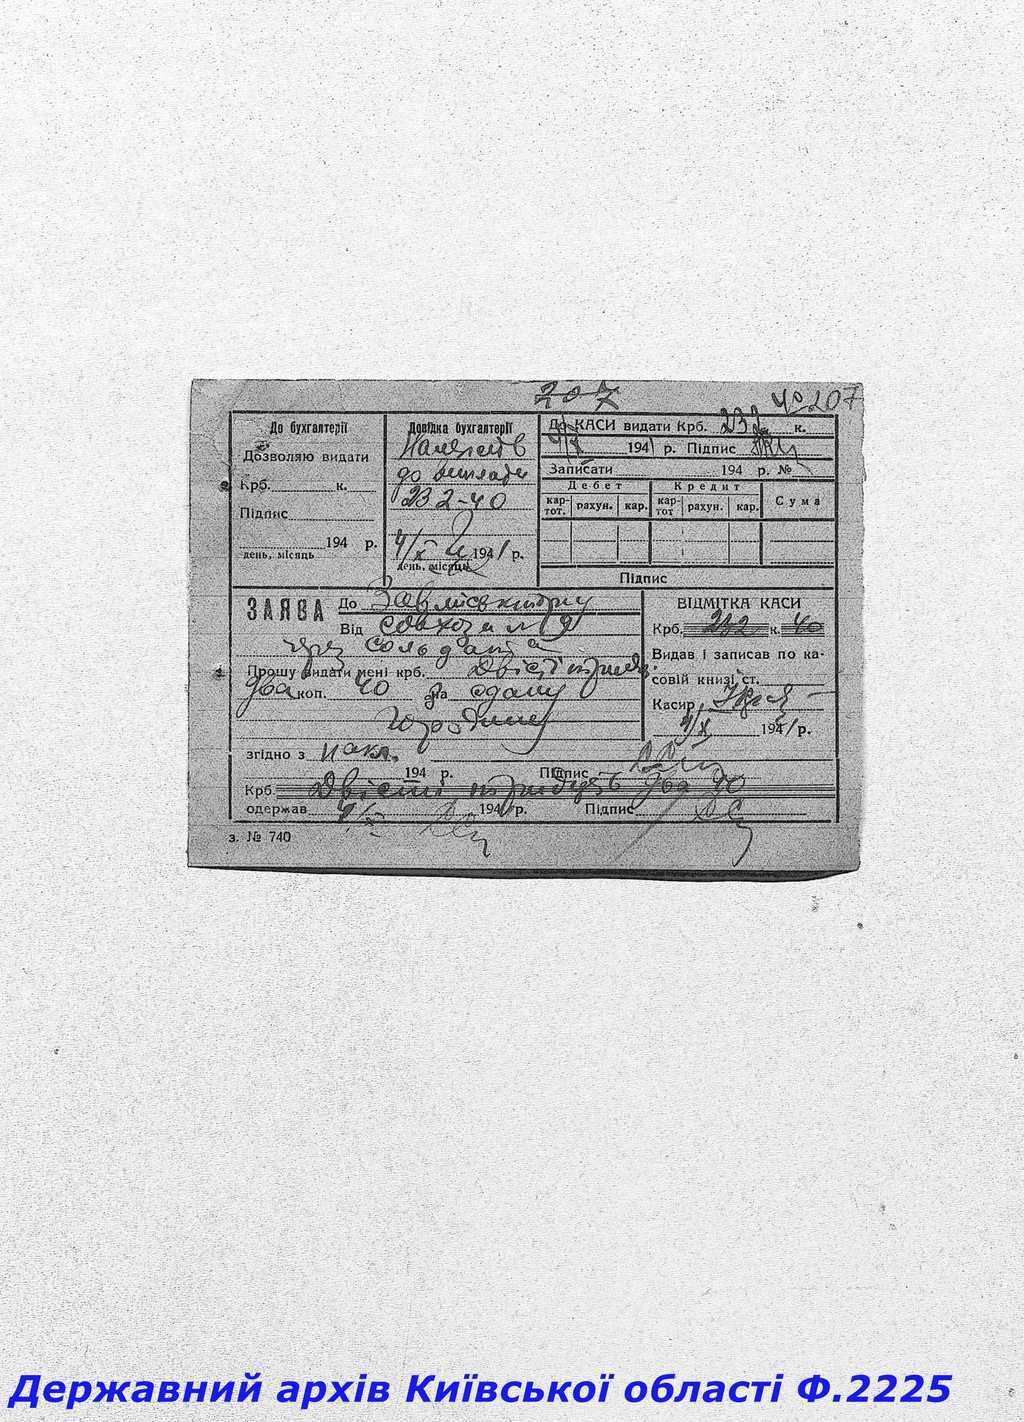 207
207
До бухгалтерії
Дозволяю видати
Крб. к.
Підпис
194 р.
день, місяць
Довідка бухгалтерії
Належить
до виплати
232-40
4/X 1941 р.
день, місяць
До КАСИ видати Крб. 232 к.
194 р. Підпис
Записати 194 р. №
Дебет Кредит Сума
кар-тот. рахун. кар. кар-тот рахун. кар.
Підпис
ЗАЯВА До
Від
Прошу видати мені крб. Двісті тридц.
два коп. 40 за здану
городину
згідно з накл.
194 р. Підпис
Крб. Двісті тридцять два 40
одержав 194 р. Підпис
ВІДМІТКА КАСИ
Крб. 232 к. 40
Видав і записав по ка-
совій книзі ст.
Касир
4/X 1941 р.
з. № 740
Державний архів Київської області Ф.2225